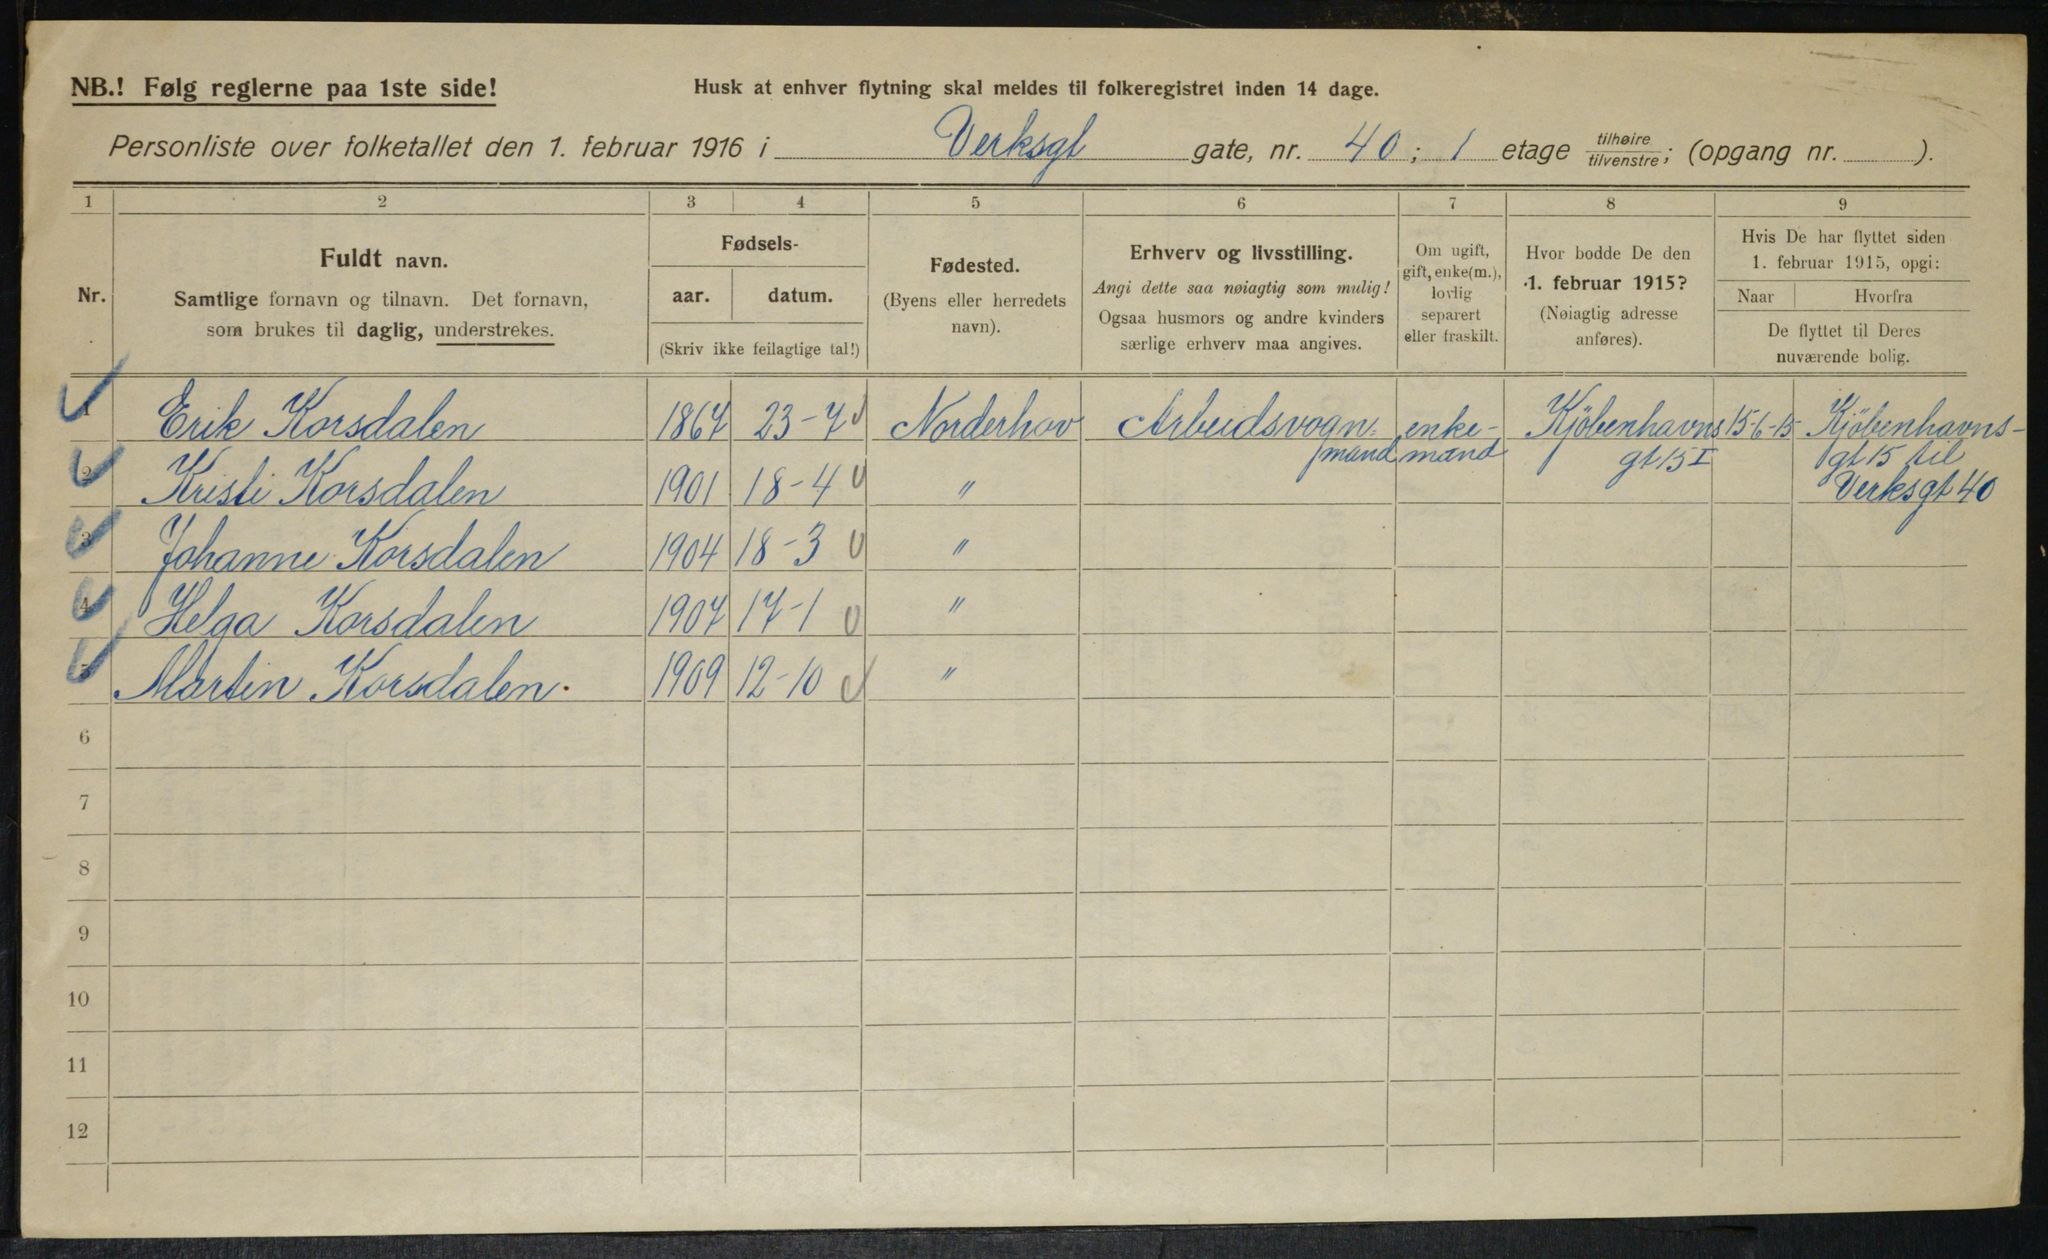 NB.! Følg reglerne paa 1ste side!
Husk at enhver flytning skal meldes til folkeregistret inden 14 dage.
Personliste over folketallet den 1. februar 1916 i Verksgt gate, nr. 40; 1 etage tilhøire/tilvenstre; (opgang nr. ).
1 2 3 4 5 6 7 8 9
Nr.
Fuldt navn.
Samtlige fornavn og tilnavn. Det fornavn,
som brukes til daglig, understrekes.
Fødsels-
aar. datum.
(Skriv ikke feilagtige tal!)
Fødested.
(Byens eller herredets
navn).
Erhverv og livsstilling.
Angi dette saa nøiagtig som mulig!
Ogsaa husmors og andre kvinders
særlige erhverv maa angives.
Om ugift,
gift, enke(m.),
lovlig
separert
eller fraskilt.
Hvor bodde De den
1. februar 1915?
(Nøiagtig adresse
anføres).
Hvis De har flyttet siden
1. februar 1915, opgi:
Naar Hvorfra
De flyttet til Deres
nuværende bolig.
1 Erik Korsdalen 1867 23-7 Norderhov Arbeidsvogn= enke- Kjöbenhavns 15-6-15 Kjöbenhavns-
mand mand gt 15 I gt 15 til
2 Kristi Korsdalen 1901 18-4 " Verksgt 40
3 Johanne Korsdalen 1904 18-3 "
4 Helga Korsdalen 1907 17-1 "
5 Martin Korsdalen. 1909 12-10 "
6
7
8
9
10
11
12